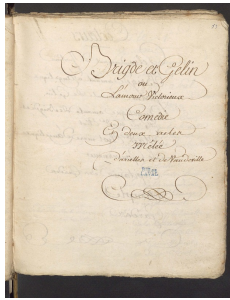 Brigde et Gelin
ou
L'amour Victorieux
Comédie
En deux actes
Mêlée
d'ariettes et de Vaudeville